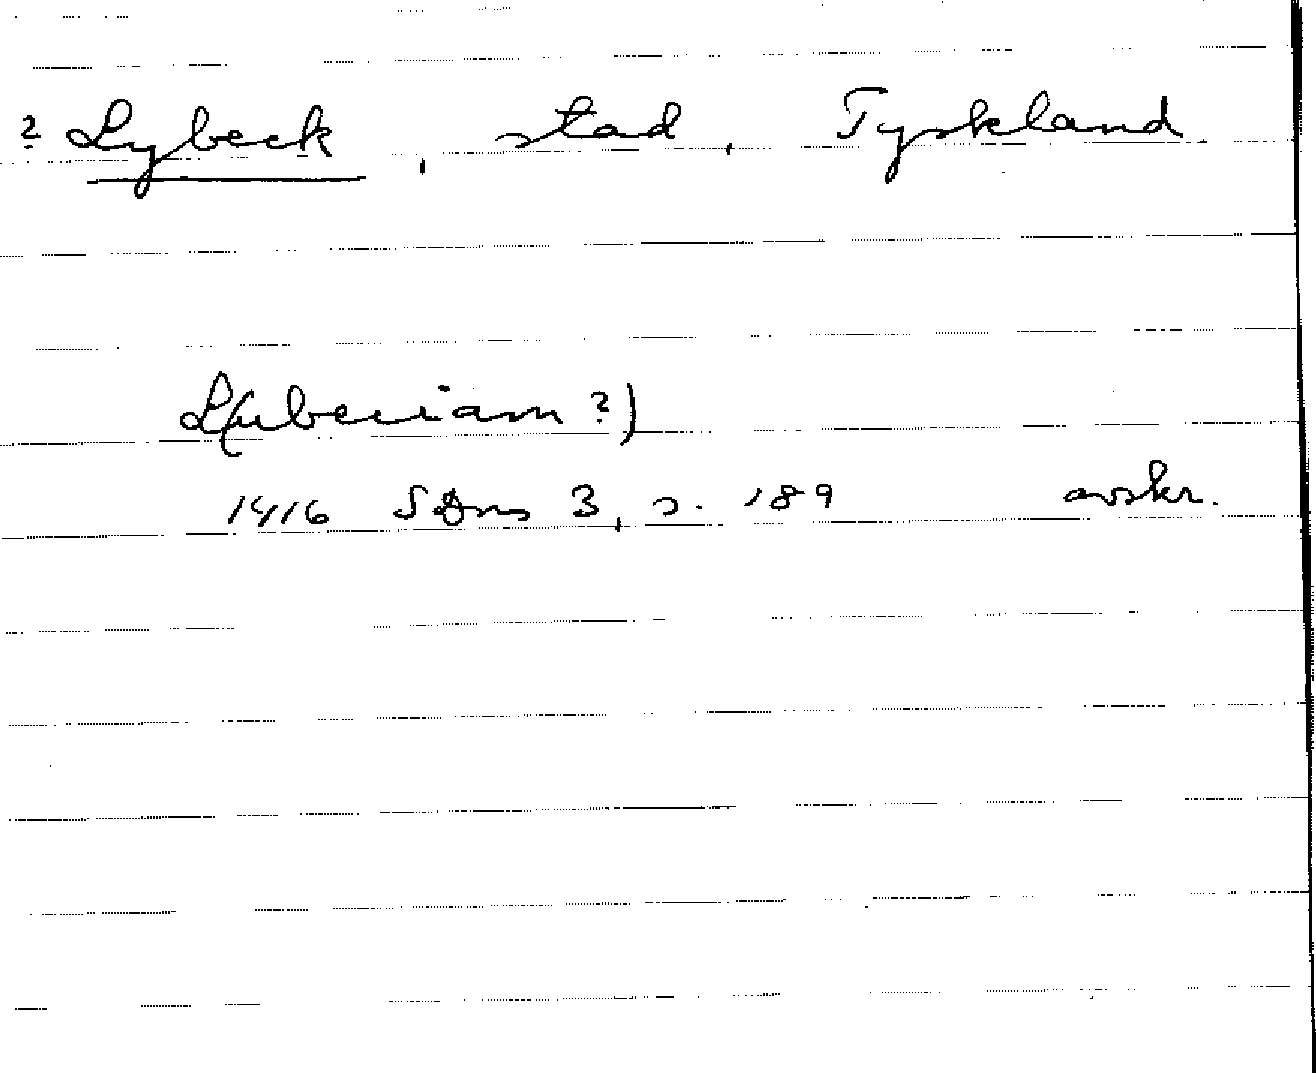 ? Lybeck, stad, Tyskland
L(ubeciam?)
1416 SDns 3, s. 189 avskr.